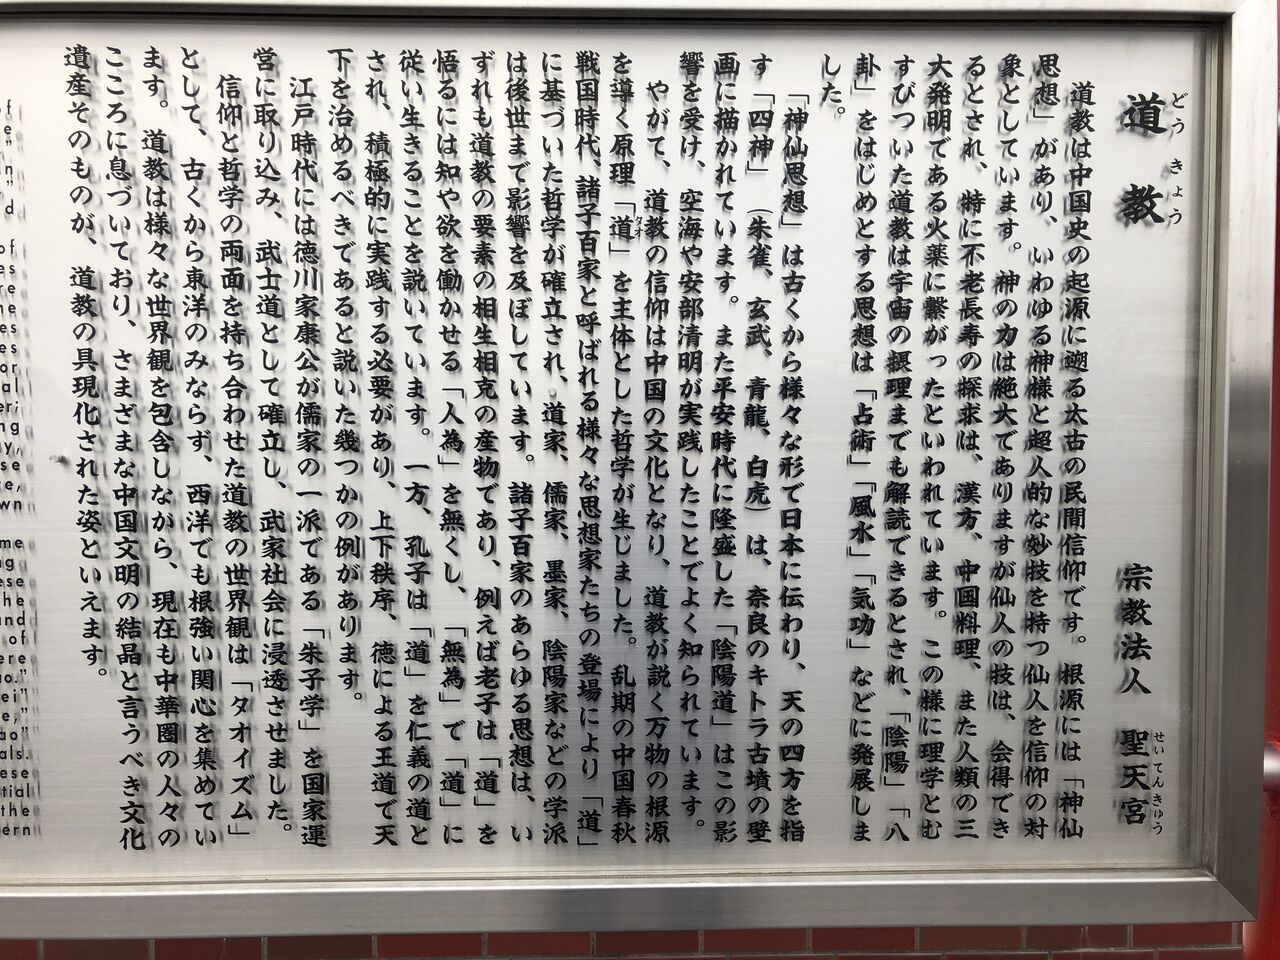 道教
どうきょう
宗教法人 聖天宮
せいてんきゅう
道教は中国史の起源に遡る太古の民間信仰です。根源には「神仙
思想」があり、いわゆる神様と超人的な妙技を持つ仙人を信仰の対
象としています。神の力は絶大でありますが仙人の技は、会得でき
るとされ、特に不老長寿の探求は、漢方、中国料理、また人類の三
大発明である火薬に繋がったといわれています。この様に理学とむ
すびついた道教は宇宙の摂理までも解読できるとされ、「陰陽」「八
卦」をはじめとする思想は「占術」「風水」「気功」などに発展しま
した。
「神仙思想」は古くから様々な形で日本に伝わり、天の四方を指
す「四神」（朱雀、玄武、青龍、白虎）は、奈良のキトラ古墳の壁
画に描かれています。また平安時代に隆盛した「陰陽道」はこの影
響を受け、空海や安部清明が実践したことでよく知られています。
やがて、道教の信仰は中国の文化となり、道教が説く万物の根源
を導く原理「道」を主体とした哲学が生じました。乱期の中国春秋
タオ
戦国時代、諸子百家と呼ばれる様々な思想家たちの登場により「道」
に基づいた哲学が確立され、道家、儒家、墨家、陰陽家などの学派
は後世まで影響を及ぼしています。諸子百家のあらゆる思想は、い
ずれも道教の要素の相生相克の産物であり、例えば老子は「道」を
悟るには知や欲を働かせる「人為」を無くし、「無為」で「道」に
従い生きることを説いています。一方、孔子は「道」を仁義の道と
され、積極的に実践する必要があり、上下秩序、徳による王道で天
下を治めるべきであると説いた幾つかの例があります。
江戸時代には徳川家康公が儒家の一派である「朱子学」を国家運
営に取り込み、武士道として確立し、武家社会に浸透させました。
信仰と哲学の両面を持ち合わせた道教の世界観は「タオイズム」
として、古くから東洋のみならず、西洋でも根強い関心を集めてい
ます。道教は様々な世界観を包含しながら、現在も中華圏の人々の
こころに息づいており、さまざまな中国文明の結晶と言うべき文化
遺産そのものが、道教の具現化された姿といえます。